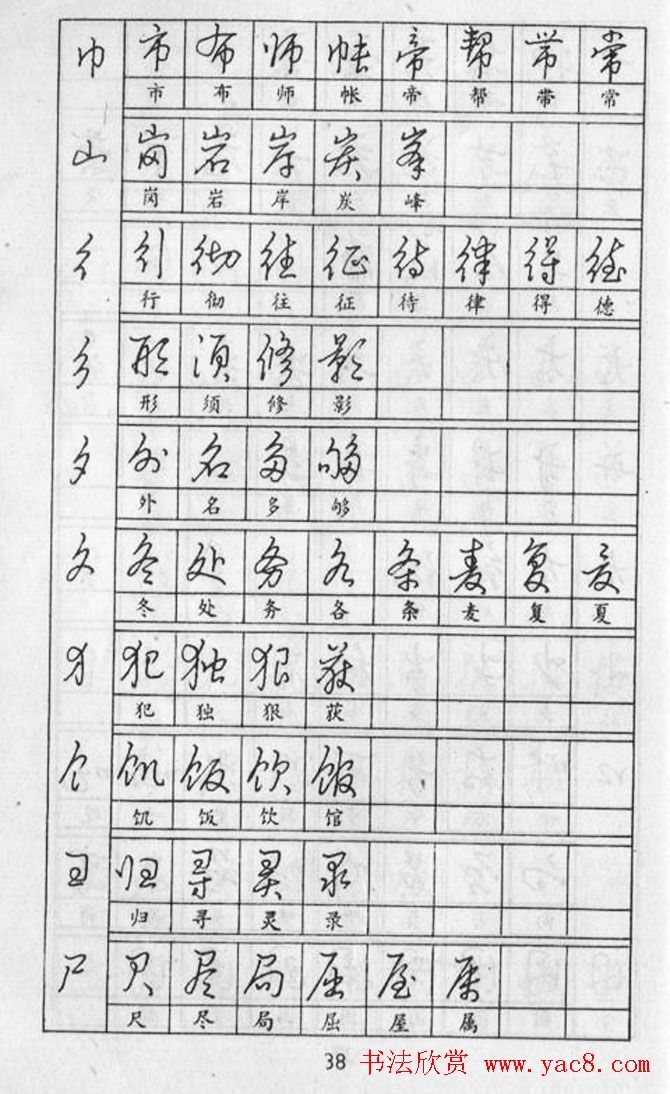 巾 市 布 师 帐 帝 帮 带 常
市 布 师 帐 帝 帮 带 常
山 岗 岩 岸 炭 峰
岗 岩 岸 炭 峰
彳 行 彻 往 征 待 律 得 德
行 彻 往 征 待 律 得 德
彡 形 须 修 影
形 须 修 影
夕 外 名 多 够
外 名 多 够
夂 冬 处 务 各 条 麦 复 夏
冬 处 务 各 条 麦 复 夏
犭 犯 独 狠 获
犯 独 狠 获
饣 饥 饭 饮 馆
饥 饭 饮 馆
彐 归 寻 灵 录
归 寻 灵 录
尸 尺 尽 局 屈 屋 属
尺 尽 局 屈 屋 属
38 书法欣赏 www.yac8.com